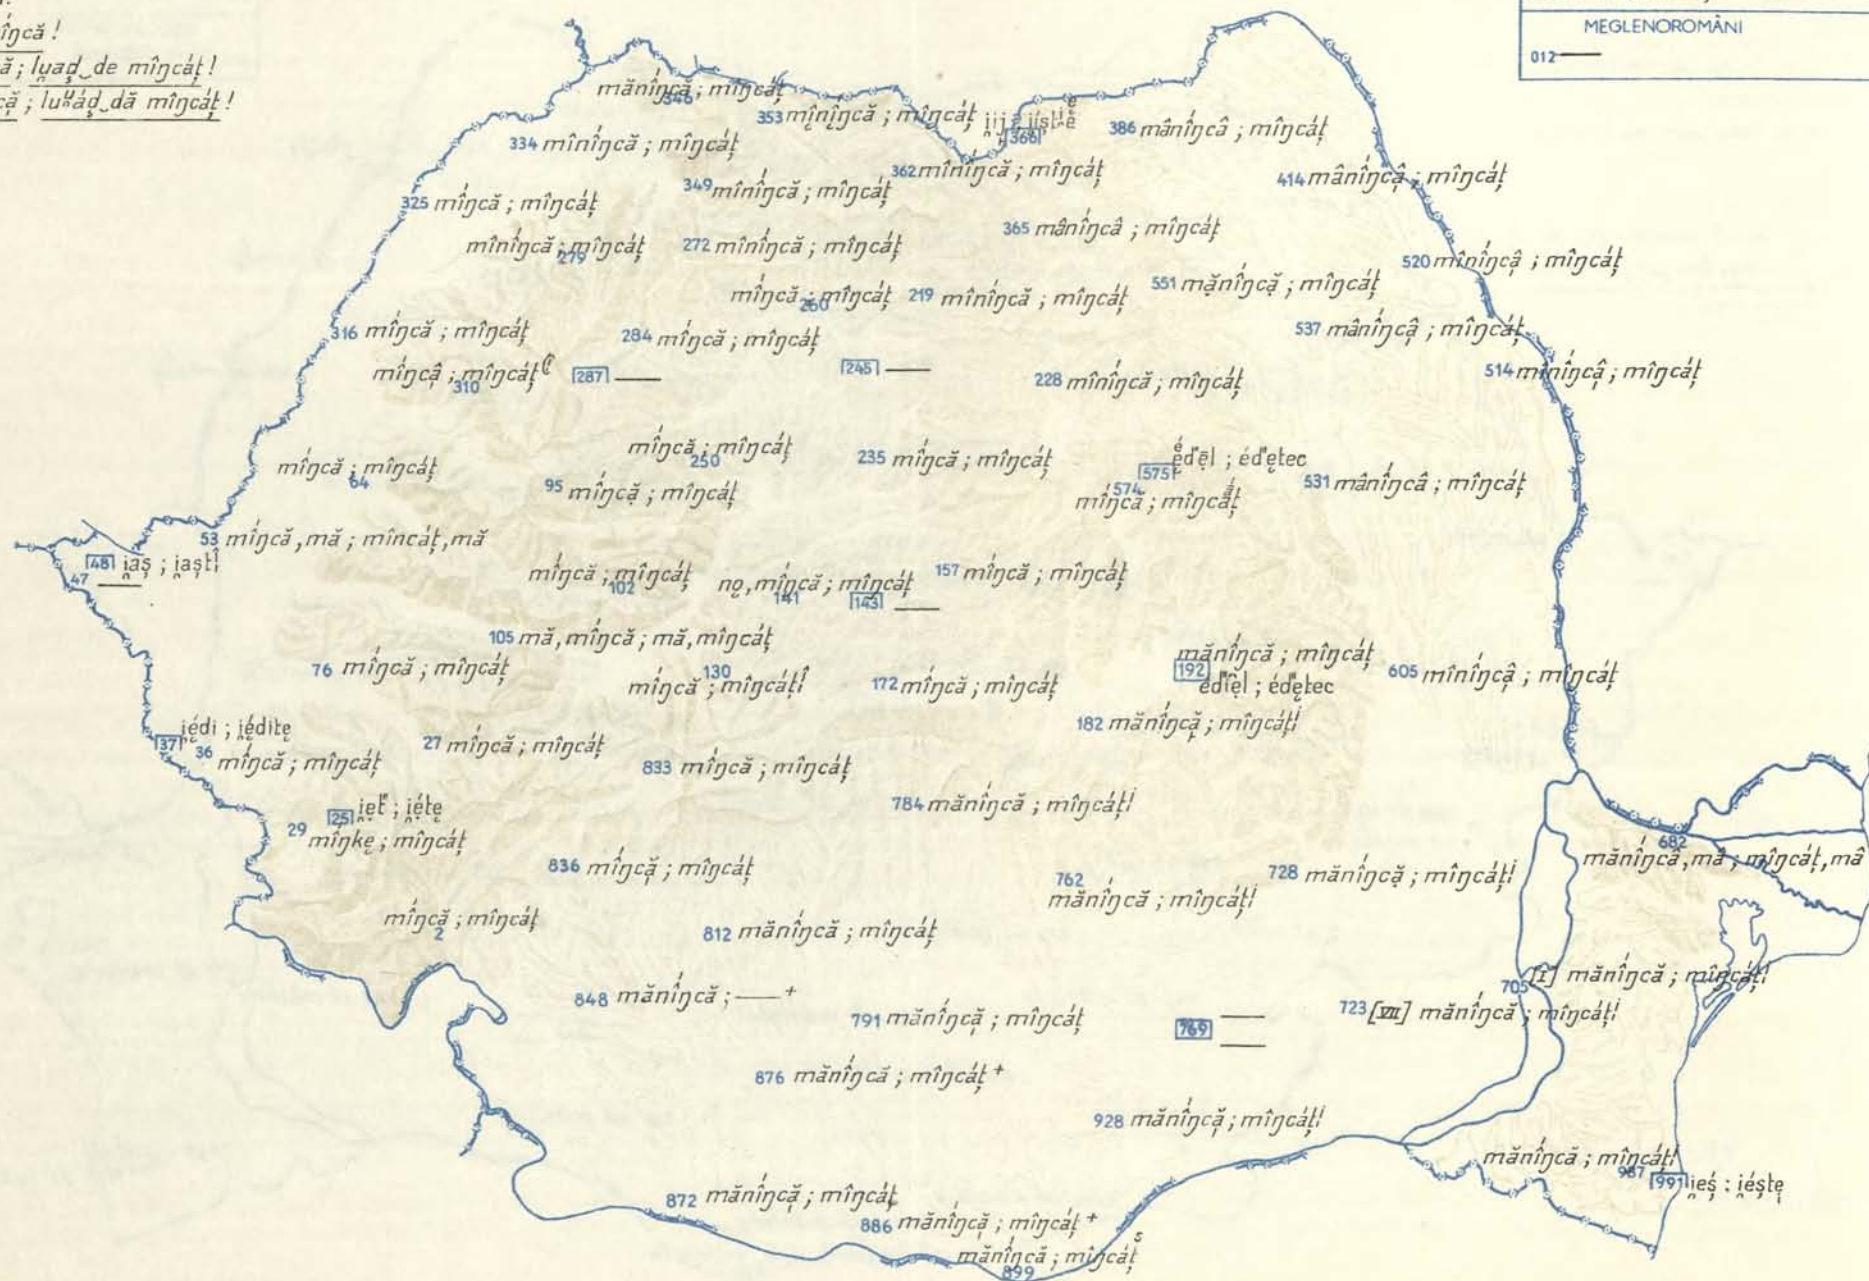 mî́ŋcă !
luad̦‿de mîŋcáț !
luu̯ád̦‿dă mîŋcáț !
MEGLENOROMÂNI
012 ——
346 mănî́ŋcă ; mîŋcáț
353 mînî́ŋcă ; mîŋcáț
366
386 mânî́ŋcâ ; mîŋcáț
334 mînî́ŋcă ; mîŋcáț
362 mînî́ŋcă ; mîŋcáț
349 mînî́ŋcă ; mîŋcáț
414 mânî́ŋcâ̦ ; mîŋcáț
325 mî́ŋcă ; mîŋcáț
365 mânî́ŋcâ ; mîŋcáț
279 mînî́ŋcă ; mîŋcáț
272 mînî́ŋcă ; mîŋcáț
520 mînî́ŋcâ̦ ; mîŋcáț
551 mă̦nî́ŋcă̦ ; mîŋcáț
260 mî́ŋcă ; mîŋcáț
219 mînî́ŋcă ; mîŋcáț
316 mî́ŋcă ; mîŋcáț
284 mî́ŋcă ; mîŋcáț
537 mânî́ŋcâ̦ ; mîŋcáț
310 mî́ŋcâ̦ ; mîŋcáț
287 ——
245 ——
228 mînî́ŋcă ; mîŋcáț
514 mînî́ŋcâ̦ ; mîŋcáț
64 mî́ŋcă ; mîŋcáț
250 mî́ŋcă ; mîŋcáț
235 mî́ŋcă ; mîŋcáț
575 éd'ẹl ; éd'ętec
95 mî́ŋcă̦ ; mîŋcáț
574 mî́ŋcă ; mîŋcáț
531 mânî́ŋcâ ; mîŋcáț
53 mî́ŋcă, mă ; mîncáț, mă
48 i̯aș ; i̯aștî
47 ——
102 mî́ŋcă ; mîŋcáț
141 nǫ, mî́ŋcă ; mîŋcáț
143 ——
157 mî́ŋcă ; mîŋcáț
105 mă, mî́ŋcă ; mă, mîŋcáț
76 mî́ŋcă ; mîŋcáț
130 mî́ŋcă ; mîŋcáțî
172 mî́ŋcă ; mîŋcáț
192 mănî́ŋcă ; mîŋcáț
éd'iẹl ; éd'ętec
605 mînî́ŋcâ̦ ; mîŋcáț
182 mănî́ŋcă̦ ; mîŋcáți
37 i̯édi ; i̯édite̦
36 mî́ŋcă ; mîŋcáț
27 mî́ŋcă ; mîŋcáț
833 mî́ŋcă ; mîŋcáț
784 mănî́ŋcă ; mîŋcáți
25 i̯et' ; i̯éte̦
29 mî́ŋke̦ ; mîŋcáț
836 mî́ŋcă̦ ; mîŋcáț
762 mănî́ŋcă ; mîŋcáți
728 mănî́ŋcă̦ ; mîŋcáți
682 mănî́ŋcâ, mâ ; mîŋcáț, mâ
2 mî́ŋcă̦ ; mîŋcáț
812 mănî́ŋcă ; mîŋcáț
848 mănî́ŋcă ; —— +
705 [I] mănî́ŋcă ; mîŋcáți
791 mănî́ŋcă̦ ; mîŋcáț
769 ——
——
723 [VII] mănî́ŋcă ; mîŋcáți
876 mănî́ŋcă ; mîŋcáț +
928 mănî́ŋcă̦ ; mîŋcáți
987 mănî́ŋcă ; mîŋcáți
991 i̯eș : i̯éște̦
872 mănî́ŋcă̦ ; mîŋcáț
886 mănî́ŋcă̦ ; mîŋcáț +
899 mănî́ŋcă ; mîŋcáț s